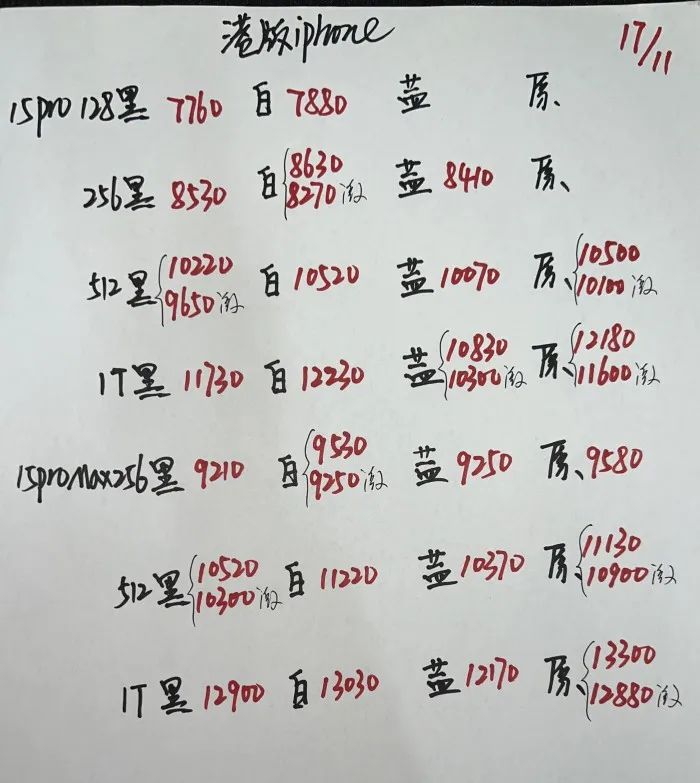 港版iphone 17/11
15pro 128黑 7760 白 7880 蓝 原、
256黑 8530 白 8630 8270激 蓝 8410 原、
512黑 10220 9650激 白 10520 蓝 10070 原、10500 10100激
1T黑 11730 白 12230 蓝 10830 10300激 原、12180 11600激
15proMax256黑 9210 白 9530 9250激 蓝 9250 原、9580
512黑 10520 10300激 白 11220 蓝 10370 原、11130 10900激
1T黑 12900 白 13030 蓝 12170 原、13300 12880激